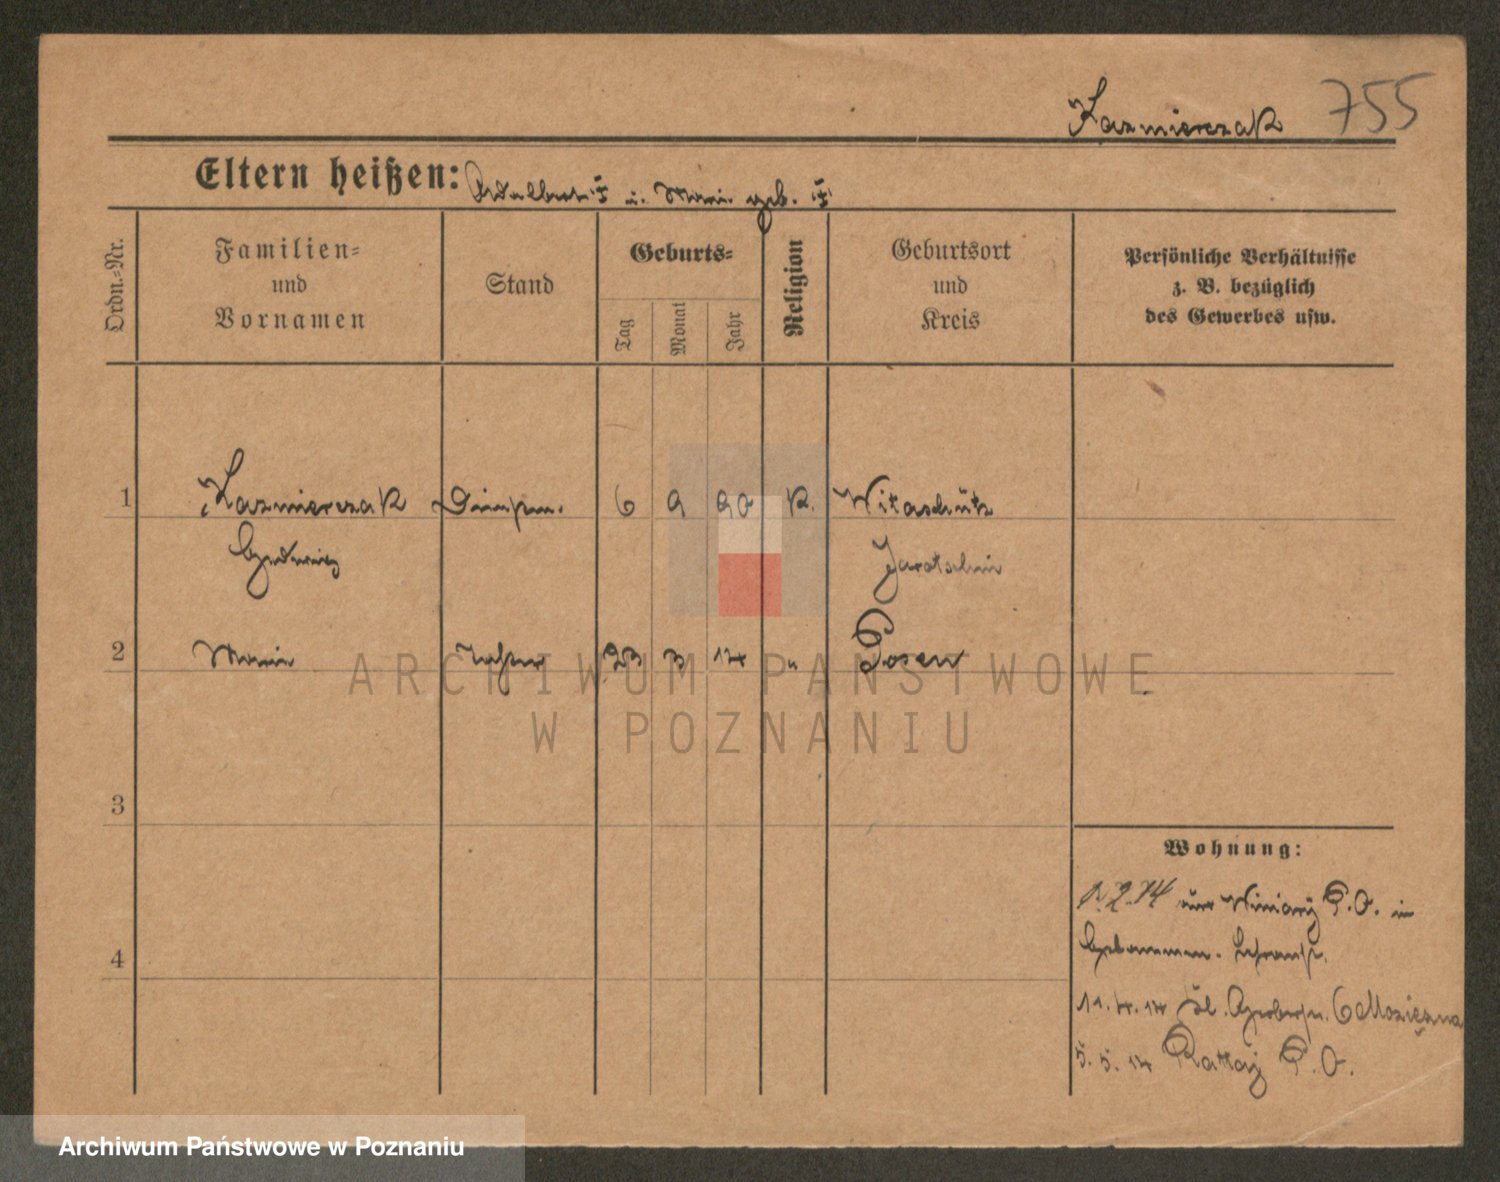 Kazmierczak 755
Eltern heißen: Adalbert F u. Marie geb. F.
Ordn.-Nr.
Familien-
und
Vornamen
Stand
Geburts-
Tag
Monat
Jahr
Religion
Geburtsort
und
Kreis
Persönliche Verhältnisse
z. B. bezüglich
des Gewerbes usw.
1 Kazmierczak 6 9 90 K. Witaschütz
Hedwig Jarotschin
2 Marie Tochter 23 3 14 " Posen
3
4
Wohnung:
2.74 Winiary P. O. in
Hebammen.
11.4.14 Gerberstr. 6
5.5.14 Rattaj P. O.
ARCHIWUM PAŃSTWOWE
W POZNANIU
Archiwum Państwowe w Poznaniu